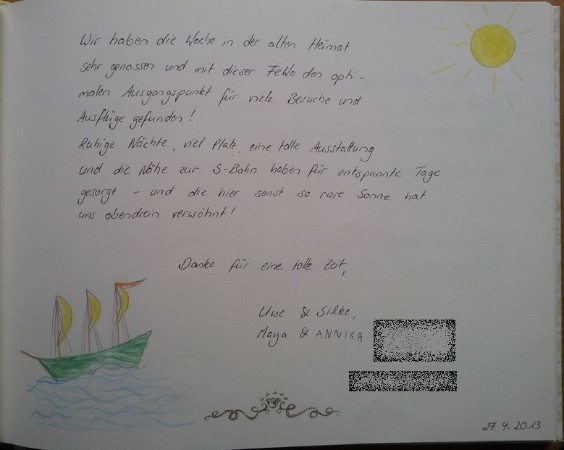 Wir haben die Woche in der alten Heimat
sehr genossen und mit dieser FeWo den opti-
malen Ausgangspunkt für viele Besuche und
Ausflüge gefunden!
Ruhige Nächte, viel Platz, eine tolle Ausstattung
und die Nähe zur S-Bahn haben für entspannte Tage
gesorgt - und die hier sonst so rare Sonne hat
uns obendrein verwöhnt!
Danke für eine tolle Zeit,
Uwe & Silke,
Maya & ANNIKA
27.4.2013